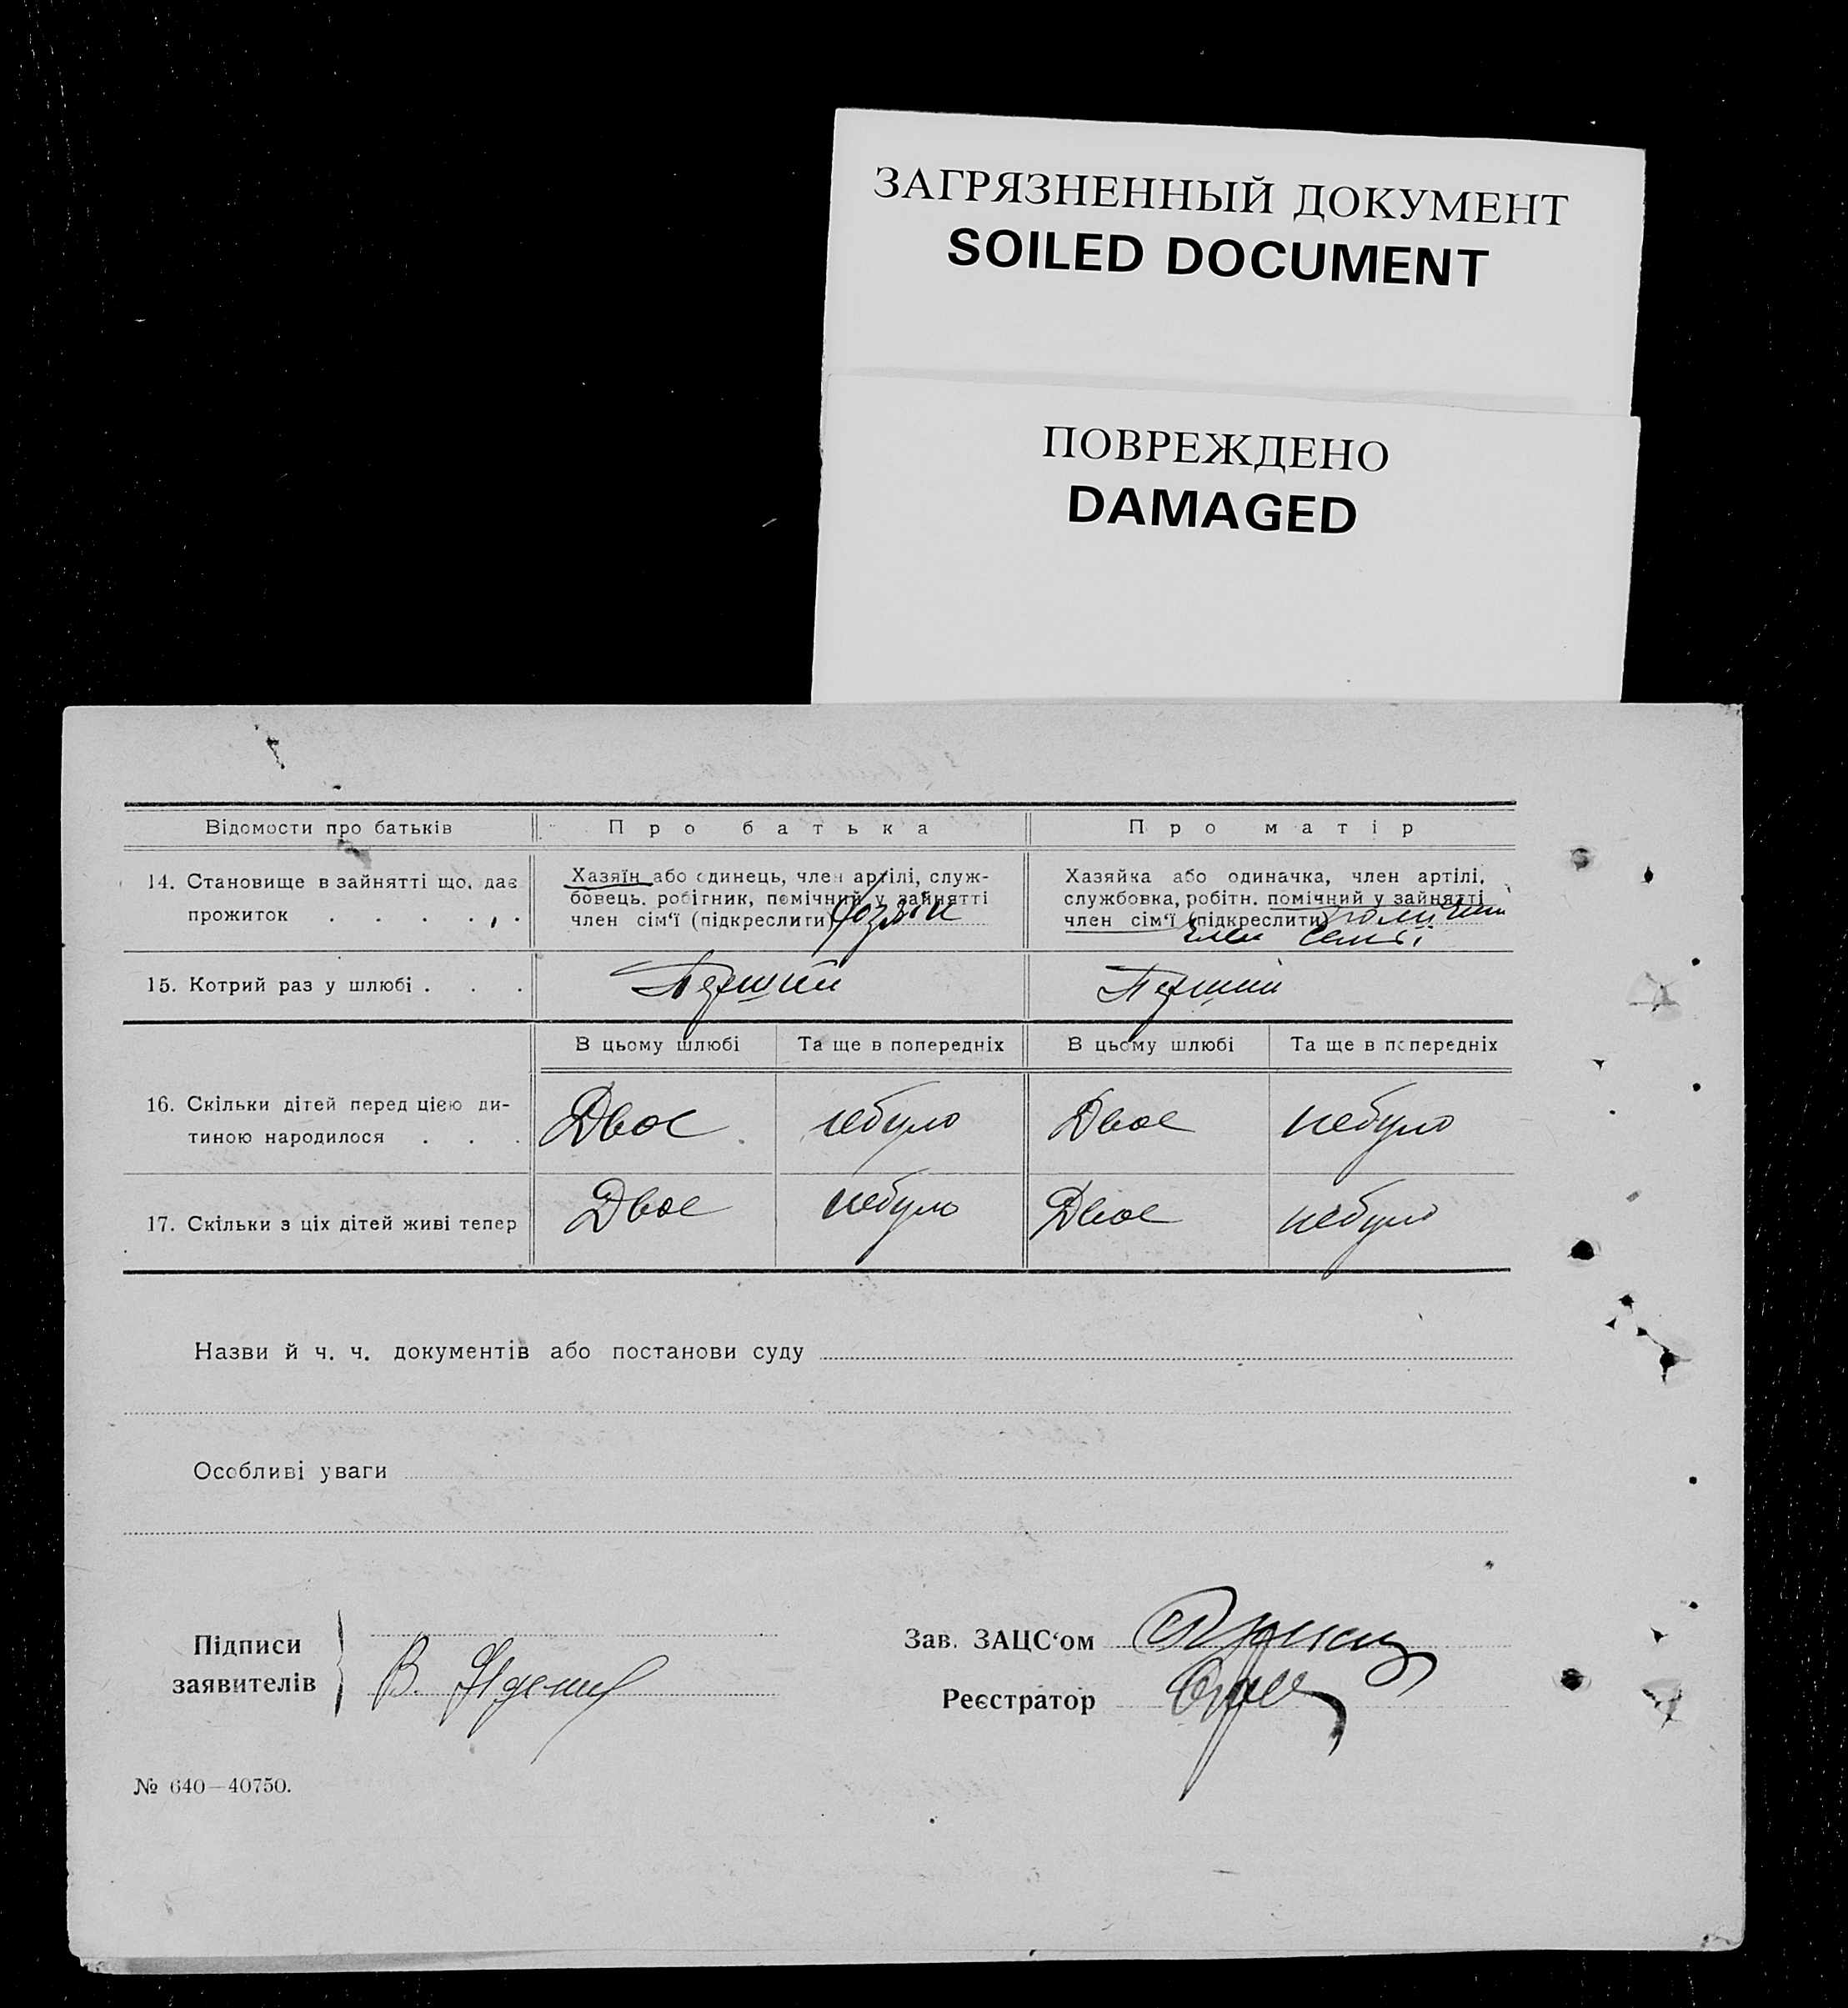 ЗАГРЯЗНЕННЫЙ ДОКУМЕНТ
SOILED DOCUMENT
ПОВРЕЖДЕНО
DAMAGED
Відомости про батьків Про батька Про матір
14. Становище в зайнятті що дає прожиток . . . . .
Хазяїн або одинець, член артілі, служ-
бовець, робітник, помічний у зайнятті
член сім'ї (підкреслити) Хозяїн
Хазяйка або одиначка, член артілі,
службовка, робітн. помічний у зайнятті
член сім'ї (підкреслити) помічний
член семї
15. Котрий раз у шлюбі . . . Перший Перший
В цьому шлюбі Та ще в попередніх В цьому шлюбі Та ще в попередніх
16. Скільки дітей перед цією ди-
тиною народилося . . . Двоє небуло Двоє небуло
17. Скільки з ціх дітей живі тепер Двоє небуло Двоє небуло
Назви й ч. ч. документів або постанови суду
Особливі уваги
Підписи
заявителів
В.
Зав. ЗАЦС'ом
Реєстратор
№ 640—40750.